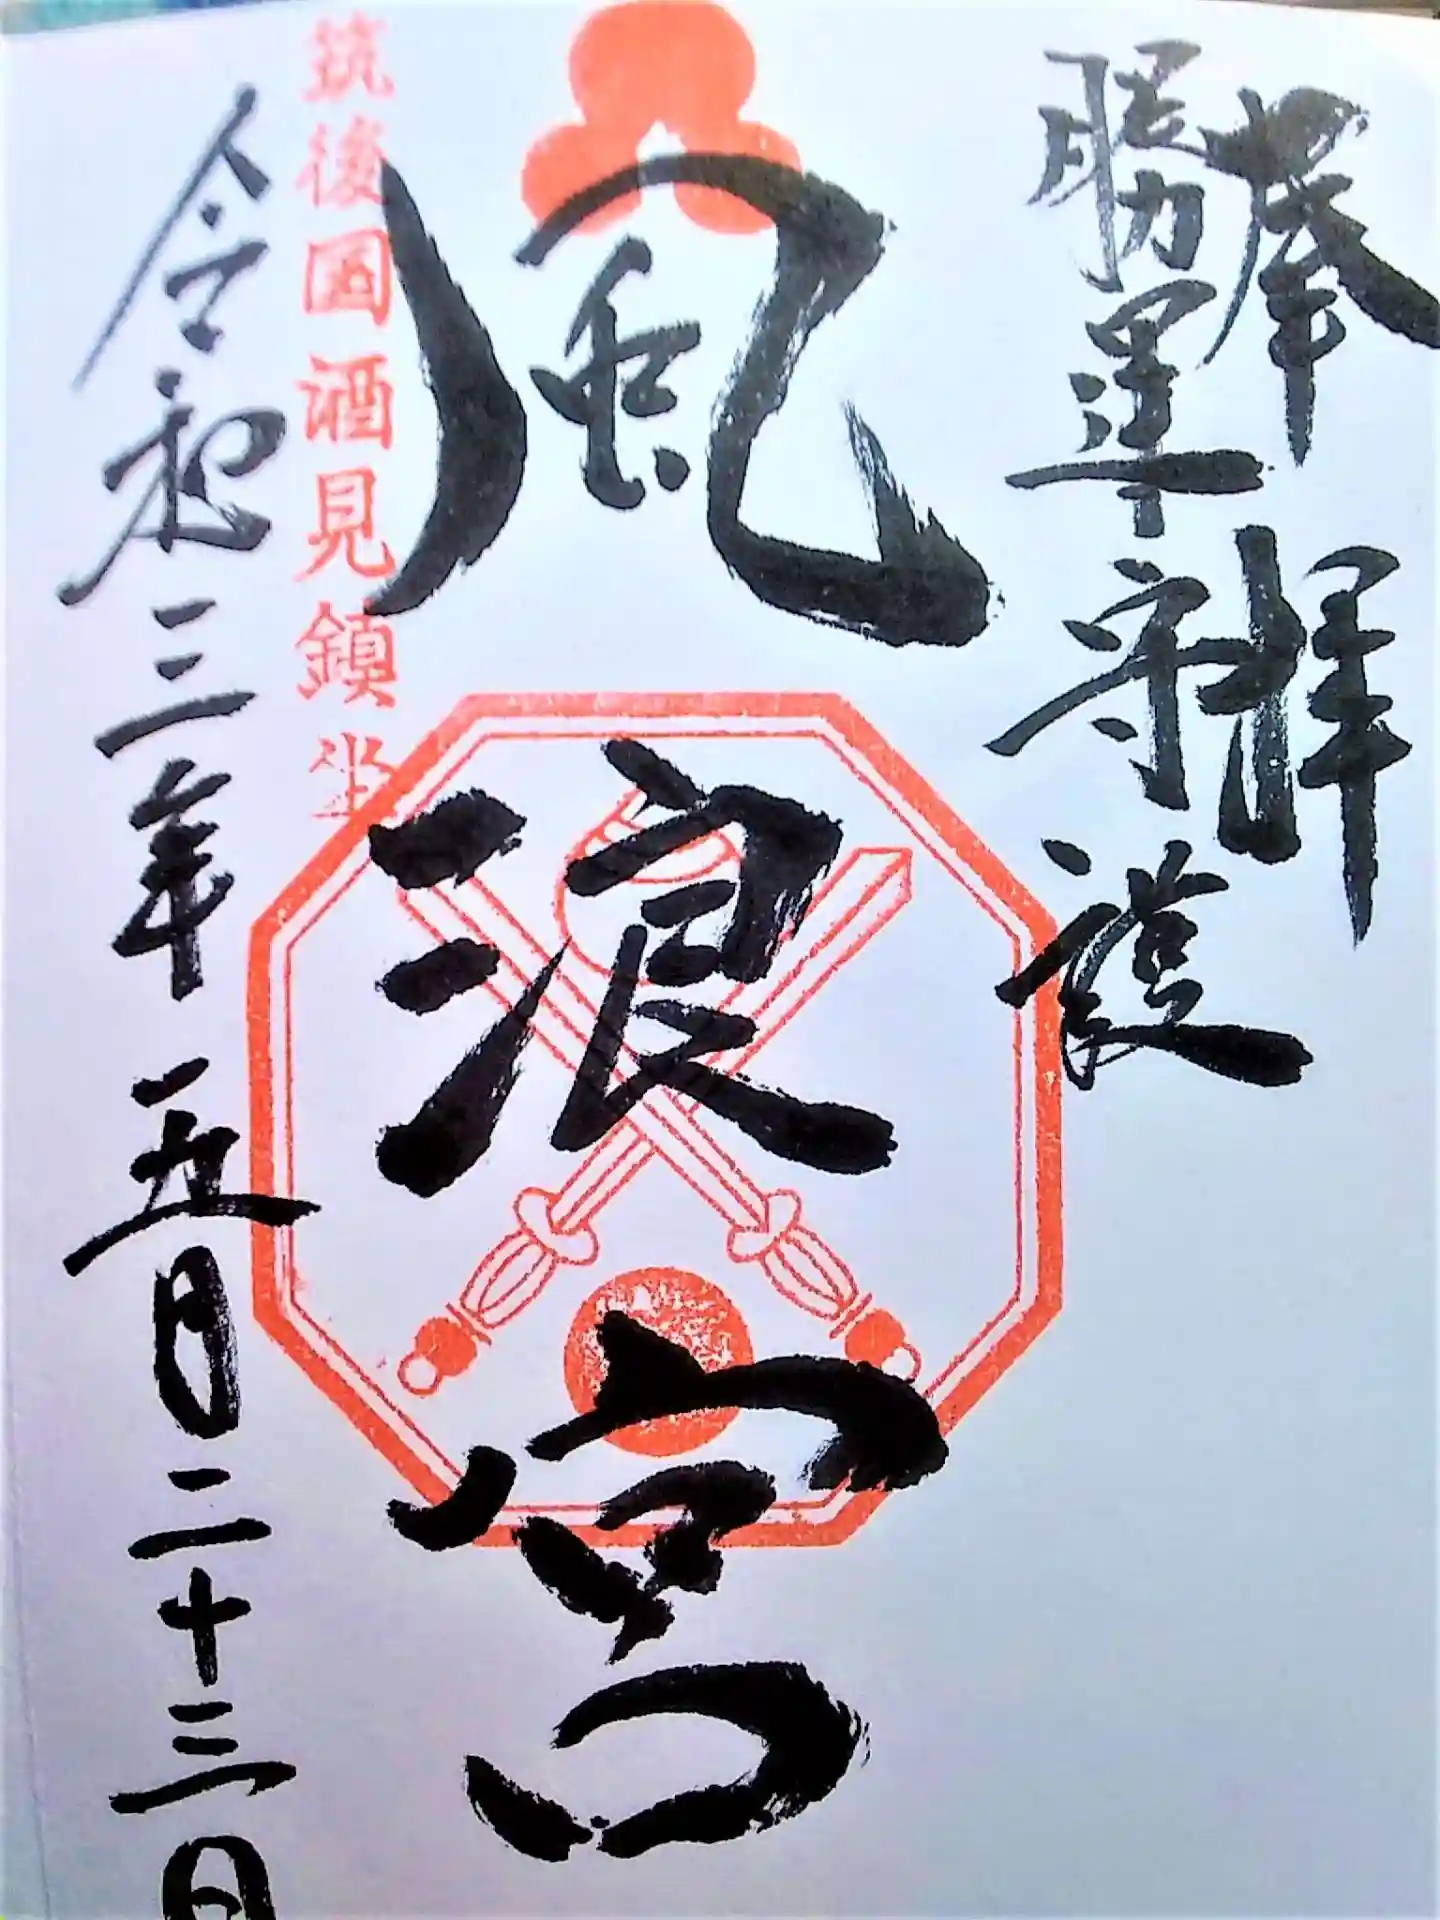 奉拝
勝運守護
風浪宮
筑後國酒見鎮坐
令和三年五月二十三日